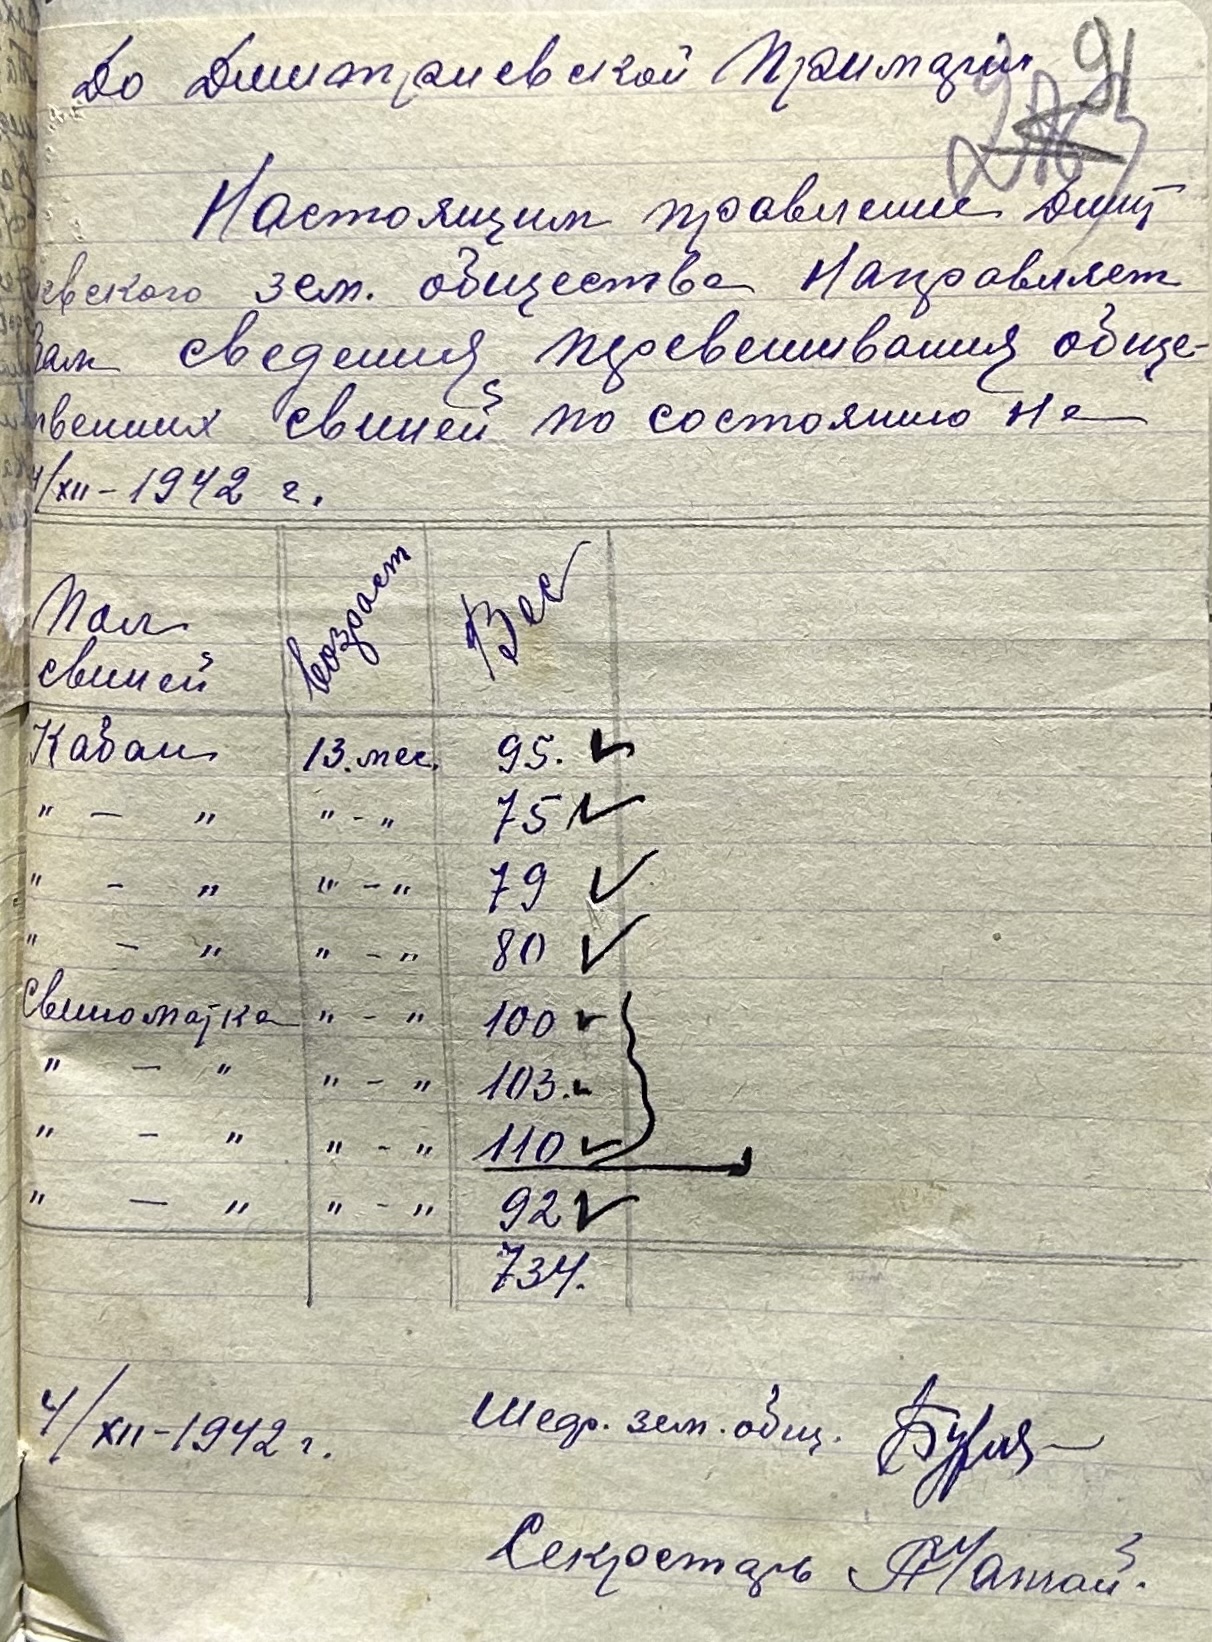 До Дмитриевской Примарии
91
Настоящим правление Дмит
иевского зем. общества направляет
Вам сведения превешивания обще-
твенних свиней по состоянию на
4/XII-1942 г.
Пол свиней возраст Вес
Кабан 13.мес. 95.
" — " " - " 75
" - " " - " 79
" — " " - " 80
Свиноматка " - " 100
" — " " - " 103.
" - " " - " 110
" — " " - " 92
734.
4/XII-1942 г. Шеф. зем. общ.
Секретарь